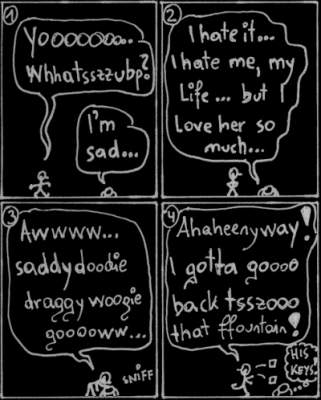 1
Yooooooo..
Whhatsszzubp?
I'm
sad...
2
I hate it...
I hate me, my
Life... but I
Love her so
much...
3
Awwww...
saddydoodie
draggy woogie
gooooww...
SNIFF
4
Ahaheenyway!
I gotta goooo
back tsszooo
that ffountain!
HIS
KEYS